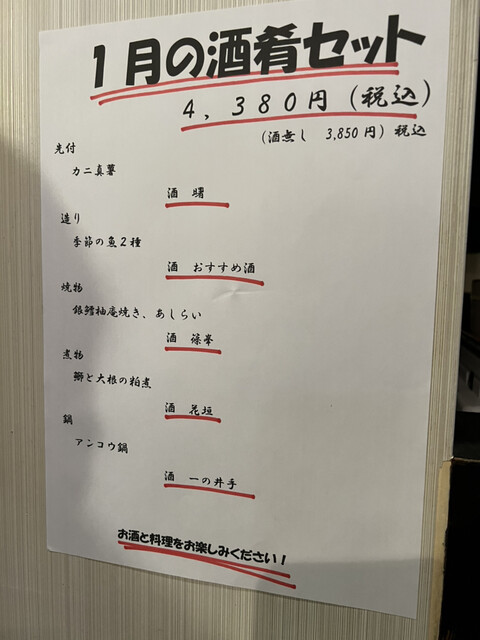 1月の酒肴セット
4,380円(税込)
(酒無し 3,850円)税込
先付
カニ真薯
酒 曙
造り
季節の魚2種
酒 おすすめ酒
焼物
銀鱈柚庵焼き、あしらい
酒 篠峯
煮物
鰤と大根の粕煮
酒 花垣
鍋
アンコウ鍋
酒 一の井手
お酒と料理をお楽しみください!